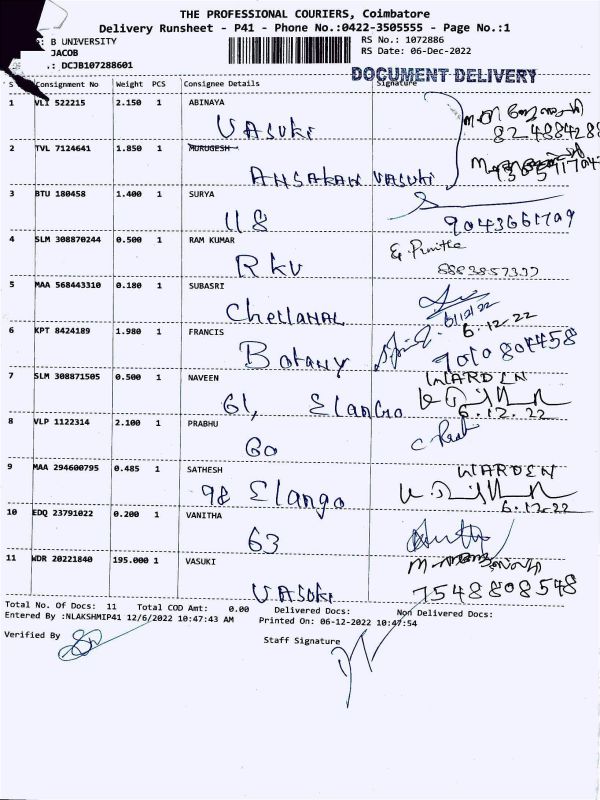 THE PROFESSIONAL COURIERS, Coimbatore
Delivery Runsheet - P41 - Phone No.:0422-3505555 - Page No.:1
: B UNIVERSITY RS No.: 1072886
JACOB RS Date: 06-Dec-2022
.: DCJB107288601 DOCUMENT DELIVERY
Consignment No Weight PCS Consignee Details Signature
1 VLI 522215 2.150 1 ABINAYA
VASUKI
2 TVL 7124641 1.850 1 MURUGESH
VASUKI
3 BTU 180458 1.400 1 SURYA
118 9043661709
4 SLM 308870244 0.500 1 RAM KUMAR
RKV
5 MAA 568443310 0.180 1 SUBASRI
6/12/22
6 KPT 8424189 1.980 1 FRANCIS 6.12.22
Botany
7 SLM 308871505 0.500 1 NAVEEN WARDEN
61, Elango 6.12.22
8 VLP 1122314 2.100 1 PRABHU
60
9 MAA 294600795 0.485 1 SATHESH WARDEN
98 Elango 6.12.22
10 EDQ 23791022 0.200 1 VANITHA
63
11 WDR 20221840 195.000 1 VASUKI
VASUKI 7548808548
Total No. Of Docs: 11 Total COD Amt: 0.00 Delivered Docs: Non Delivered Docs:
Entered By :NLAKSHMIP41 12/6/2022 10:47:43 AM Printed On: 06-12-2022 10:47:54
Verified By Staff Signature